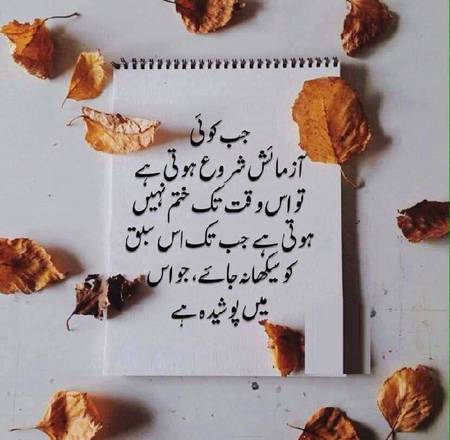 جب کوئی
آزمائش شروع ہوتی ہے
تو اس وقت تک ختم نہیں
ہوتی ہے جب تک اس سبق
کو سیکھا نہ جائے، جو اس
میں پوشیدہ ہے